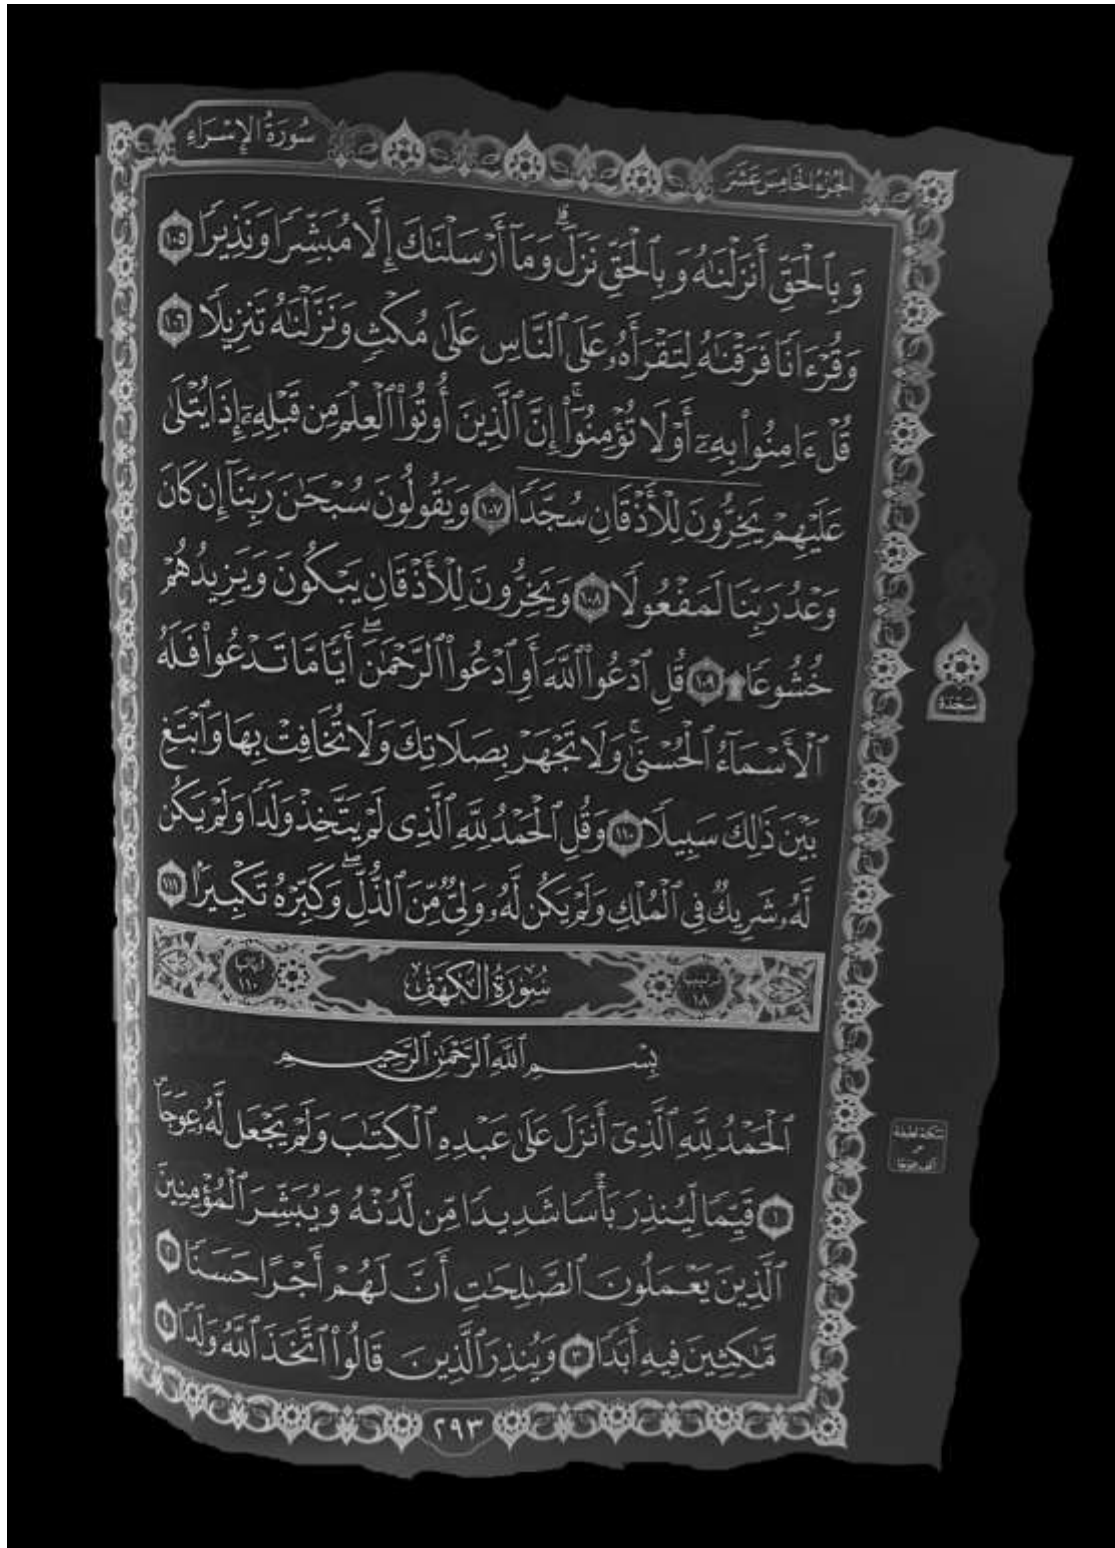 سُورَةُ الإِسْرَاءِ
الجُزْءُ الخَامِسَ عَشَرَ
وَبِٱلْحَقِّ أَنزَلْنَٰهُ وَبِٱلْحَقِّ نَزَلَۗ وَمَآ أَرْسَلْنَٰكَ إِلَّا مُبَشِّرٗا وَنَذِيرٗا ١٠٥
وَقُرْءَانٗا فَرَقْنَٰهُ لِتَقْرَأَهُۥ عَلَى ٱلنَّاسِ عَلَىٰ مُكْثٖ وَنَزَّلْنَٰهُ تَنزِيلٗا ١٠٦
قُلْ ءَامِنُوا۟ بِهِۦٓ أَوْ لَا تُؤْمِنُوٓا۟ۚ إِنَّ ٱلَّذِينَ أُوتُوا۟ ٱلْعِلْمَ مِن قَبْلِهِۦٓ إِذَا يُتْلَىٰ
عَلَيْهِمْ يَخِرُّونَ لِلْأَذْقَانِ سُجَّدٗا ١٠٧ وَيَقُولُونَ سُبْحَٰنَ رَبِّنَآ إِن كَانَ
وَعْدُ رَبِّنَا لَمَفْعُولٗا ١٠٨ وَيَخِرُّونَ لِلْأَذْقَانِ يَبْكُونَ وَيَزِيدُهُمْ
خُشُوعٗا۩ ١٠٩ قُلِ ٱدْعُوا۟ ٱللَّهَ أَوِ ٱدْعُوا۟ ٱلرَّحْمَٰنَۖ أَيّٗا مَّا تَدْعُوا۟ فَلَهُ
ٱلْأَسْمَآءُ ٱلْحُسْنَىٰۚ وَلَا تَجْهَرْ بِصَلَاتِكَ وَلَا تُخَافِتْ بِهَا وَٱبْتَغِ
بَيْنَ ذَٰلِكَ سَبِيلٗا ١١٠ وَقُلِ ٱلْحَمْدُ لِلَّهِ ٱلَّذِى لَمْ يَتَّخِذْ وَلَدٗا وَلَمْ يَكُن
لَّهُۥ شَرِيكٞ فِى ٱلْمُلْكِ وَلَمْ يَكُن لَّهُۥ وَلِىّٞ مِّنَ ٱلذُّلِّۖ وَكَبِّرْهُ تَكْبِيرَۢا ١١١
سُورَةُ الكَهْفِ
١٨
١١٠
بِسْمِ ٱللَّهِ ٱلرَّحْمَٰنِ ٱلرَّحِيمِ
ٱلْحَمْدُ لِلَّهِ ٱلَّذِىٓ أَنزَلَ عَلَىٰ عَبْدِهِ ٱلْكِتَٰبَ وَلَمْ يَجْعَل لَّهُۥ عِوَجَاۜ
١ قَيِّمٗا لِّيُنذِرَ بَأْسٗا شَدِيدٗا مِّن لَّدُنْهُ وَيُبَشِّرَ ٱلْمُؤْمِنِينَ
ٱلَّذِينَ يَعْمَلُونَ ٱلصَّٰلِحَٰتِ أَنَّ لَهُمْ أَجْرًا حَسَنٗا ٢
مَّٰكِثِينَ فِيهِ أَبَدٗا ٣ وَيُنذِرَ ٱلَّذِينَ قَالُوا۟ ٱتَّخَذَ ٱللَّهُ وَلَدٗا ٤
٢٩٣
سَجْدَة